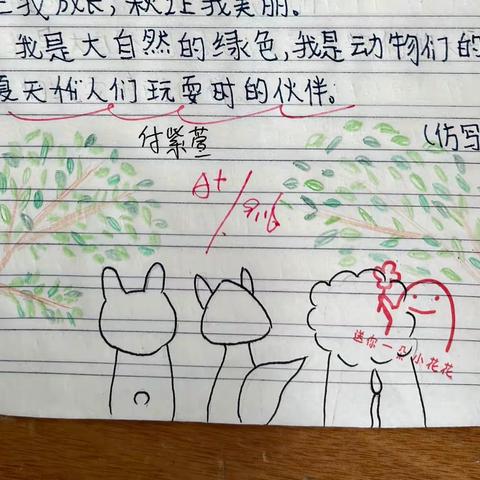 让我成长，秋让我美丽。
我是大自然的绿色，我是动物们的
夏天. 人们玩耍时的伙伴。
付紫萱
(仿写
A+
9.16
送你一朵小花花